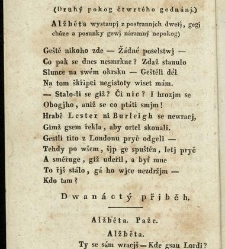 (Druhý pokog čtwrtého gednánj.)
Alžběta wystaupj z postrannjch dweřj, gegj
chůze a posunky gewj náramný nepokog)
Geště nikoho zde — Žádné poselstwj —
Co pak se dnes nesmrkne? Zdaž stanulo
Slunce na swém okrsku — Geštěli děl
Na tom skřipci negistoty mám státi. —
Stalo-li se giž? Či nic? I hrozjm se
Obogjho, aniž se co ptáti smjm!
Hrabě Lester ni Burleigh se newracj,
Gimž gsem řekla, aby ortel skonali.
Gestli tito z Londonu pryč odgeli —
Tehdy po wšem, šjp ge spuštěn, letj pryč
A směruge, giž udeřil, a byť mne
To řjš stálo, gá ho wjce nezdržjm —
Kdo tam?
Dwanáctý přjběh.
Alžběta. Páže.
Alžběta.
Ty se sám wracjš — Kde gsau Lordi?